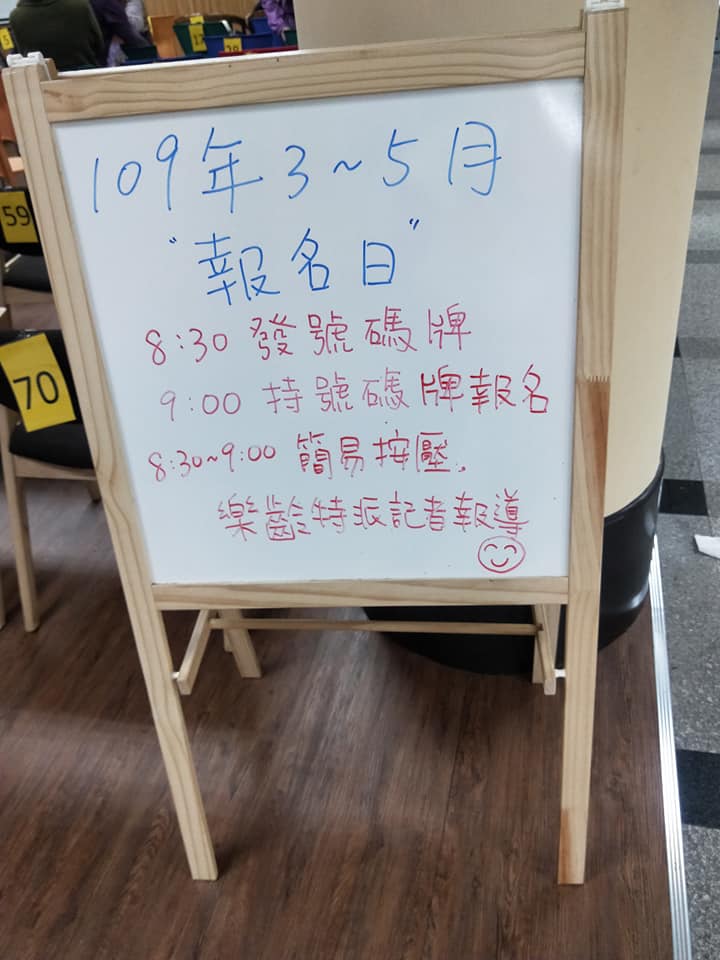 109年3~5月
"報名日"
8:30 發號碼牌
9:00 持號碼牌報名
8:30~9:00 簡易按壓.
樂齡特派記者報導
59
70